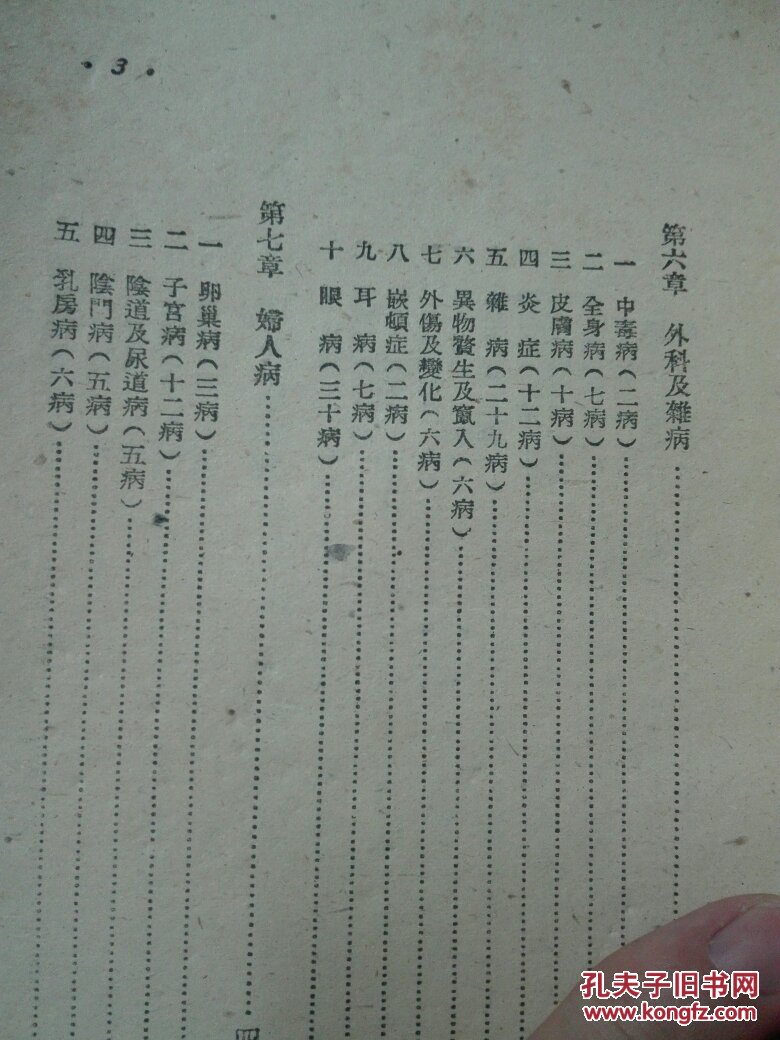 • 3 •
第六章 外科及雜病
一 中毒病(二病)
二 全身病(七病)
三 皮膚病(十病)
四 炎症(十二病)
五 雜病(二十九病)
六 異物贅生及竄入(六病)
七 外傷及變化(六病)
八 嵌頓症(二病)
九 耳病(七病)
十 眼病(三十病)
第七章 婦人病
四
一 卵巢病(三病)
二 子宮病(十二病)
三 陰道及尿道病(五病)
四 陰門病(五病)
五 乳房病(六病)
孔夫子旧书网
www.kongfz.com